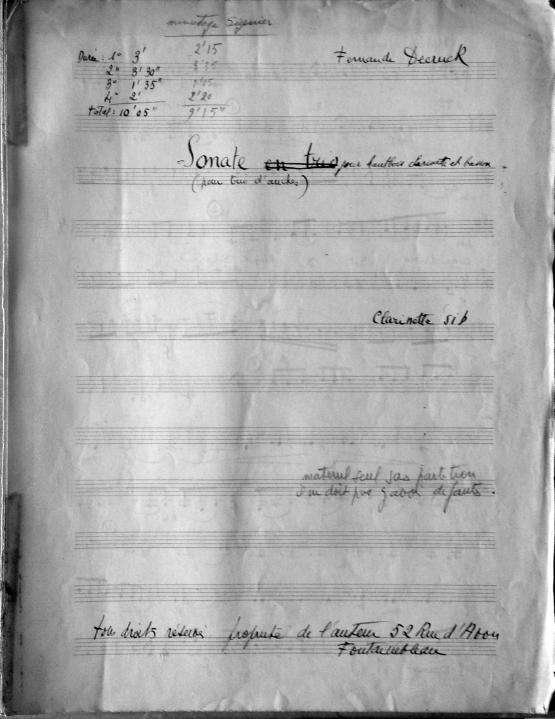 minutage Signier
Durée: 1° 3' 2'15
2° 3'30" 3'35
3° 1'35" 1'05
4° 2' 2'20
total: 10'05" 9'15"
Fernande Decruck
Sonate en trio pour hautbois clarinette et basson.
(pour trio d'anches)
Clarinette Si b
matériel seul sas partition
il ne doit pas y avoir de fautes.
tous droits réservés propriété de l'auteur 52 Rue d'Avon
Fontainebleau